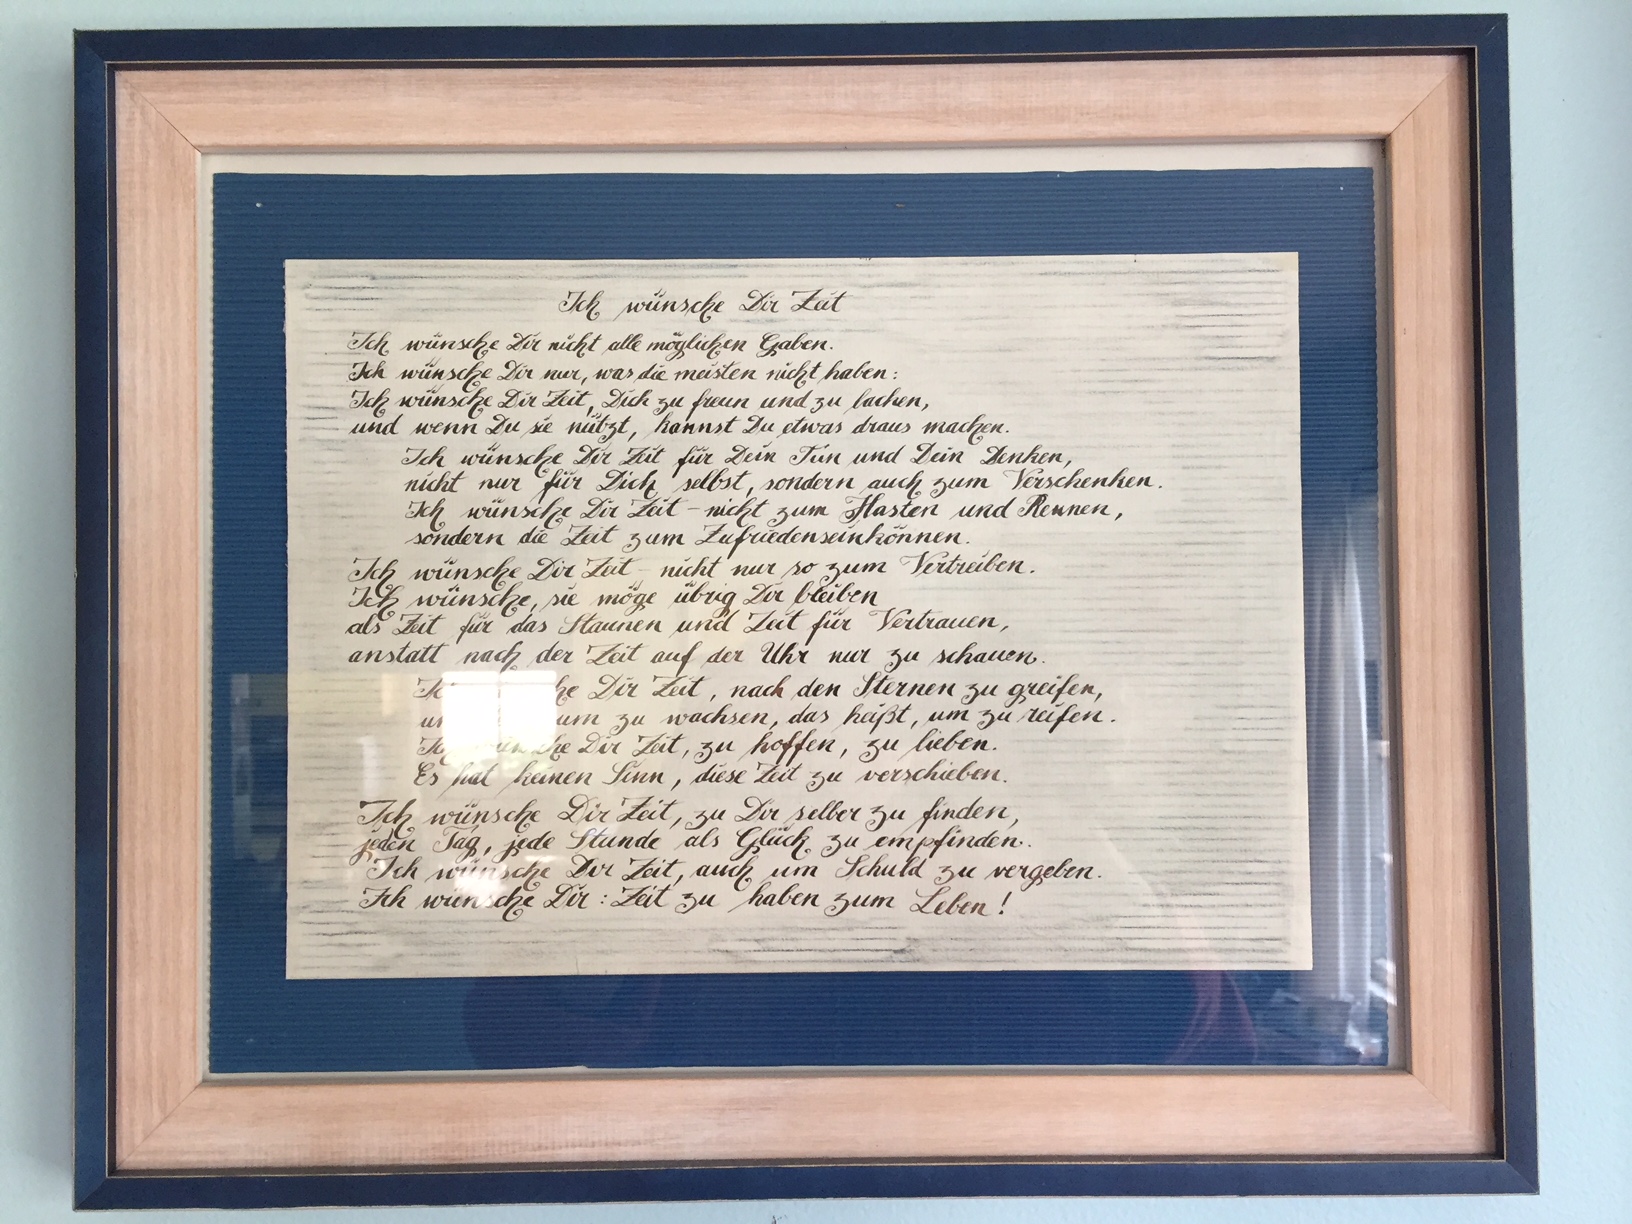 Ich wünsche Dir Zeit
Ich wünsche Dir nicht alle möglichen Gaben.
Ich wünsche Dir nur, was die meisten nicht haben:
Ich wünsche Dir Zeit, Dich zu freun und zu lachen,
und wenn Du sie nützt, kannst Du etwas draus machen.
Ich wünsche Dir Zeit für Dein Tun und Dein Denken,
nicht nur für Dich selbst, sondern auch zum Verschenken.
Ich wünsche Dir Zeit - nicht zum Hasten und Rennen,
sondern die Zeit zum Zufriedenseinkönnen.
Ich wünsche Dir Zeit - nicht nur so zum Vertreiben.
Ich wünsche, sie möge übrig Dir bleiben
als Zeit für das Staunen und Zeit für Vertrauen,
anstatt nach der Zeit auf der Uhr nur zu schauen.
Dir Zeit, nach den Sternen zu greifen,
zu wachsen, das heißt, um zu reifen.
Ich wünsche Dir Zeit, zu hoffen, zu lieben.
Es hat keinen Sinn, diese Zeit zu verschieben.
Ich wünsche Dir Zeit, zu Dir selber zu finden,
jeden Tag, jede Stunde als Glück zu empfinden.
Ich wünsche Dir Zeit, auch um Schuld zu vergeben.
Ich wünsche Dir: Zeit zu haben zum Leben!